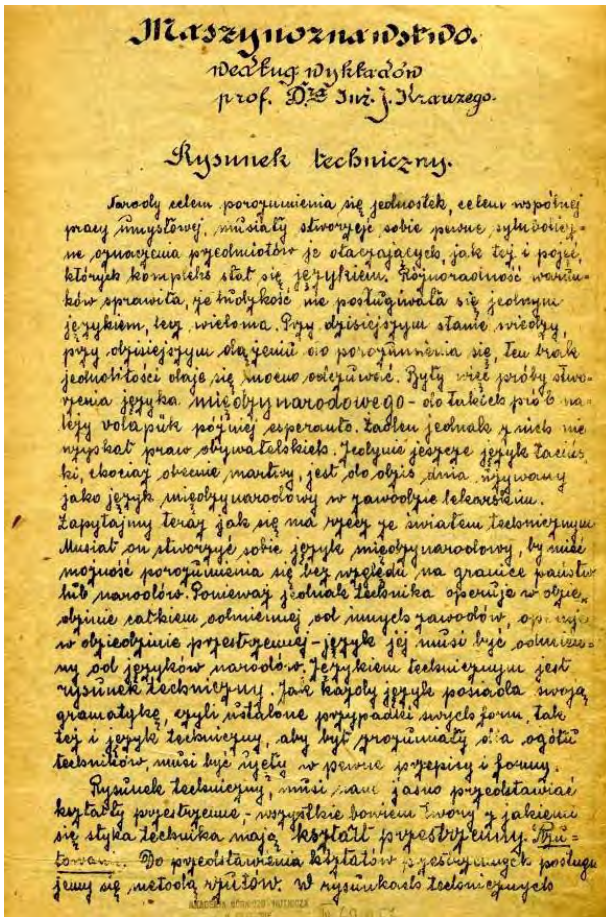 Maszynoznawstwo.
według wykładów
prof. Dra Inż. J. Krauzego.
Rysunek techniczny.
Narody celem porozumienia się jednostek, celem wspólnej
pracy umysłowej, musiały stworzyć sobie pewne symbolicz-
ne oznaczenia przedmiotów je otaczających, jak też i pojęć,
których kompleks stał się językiem. Różnorodność warun-
ków sprawiła, że ludzkość nie posługiwała się jednym
językiem, lecz wieloma. Przy dzisiejszym stanie wiedzy,
przy dzisiejszym dążeniu do porozumienia się, ten brak
jednolitości daje się mocno odczuwać. Były więc próby stwo-
rzenia języka międzynarodowego - do takich prób na-
leży volapük później esperanto. Żaden jednak z nich nie
uzyskał praw obywatelskich. Jedynie jeszcze język łacińs-
ki, chociaż obecnie martwy, jest do dziś dnia używany
jako język międzynarodowy w zawodzie lekarskim.
Zapytajmy teraz jak się ma rzecz ze światem technicznym
Musiał on stworzyć sobie język międzynarodowy, by mieć
możność porozumienia się bez względu na granice państw
lub narodów. Ponieważ jednak technika operuje w dzie-
dzinie całkiem odmiennej od innych zawodów, operuje
w dziedzinie przestrzennej - język jej musi być odmien-
ny od języków narodów. Językiem technicznym jest
rysunek techniczny. Jak każdy język posiada swoją
gramatykę, czyli ustalone przypadki swych form, tak
też i język techniczny, aby był zrozumiały dla ogółu
techników, musi być ujęty w pewne przepisy i formy.
Rysunek techniczny, musi nam jasno przedstawiać
kształty przestrzenne - wszystkie bowiem twory z jakiemi
się styka technika mają kształt przestrzenny. Rzu-
towanie. Do przedstawienia kształtów przestrzennych posługu
jemy się metodą rzutów. W rysunkach technicznych
AKADEMIA GÓRNICZO-HUTNICZA